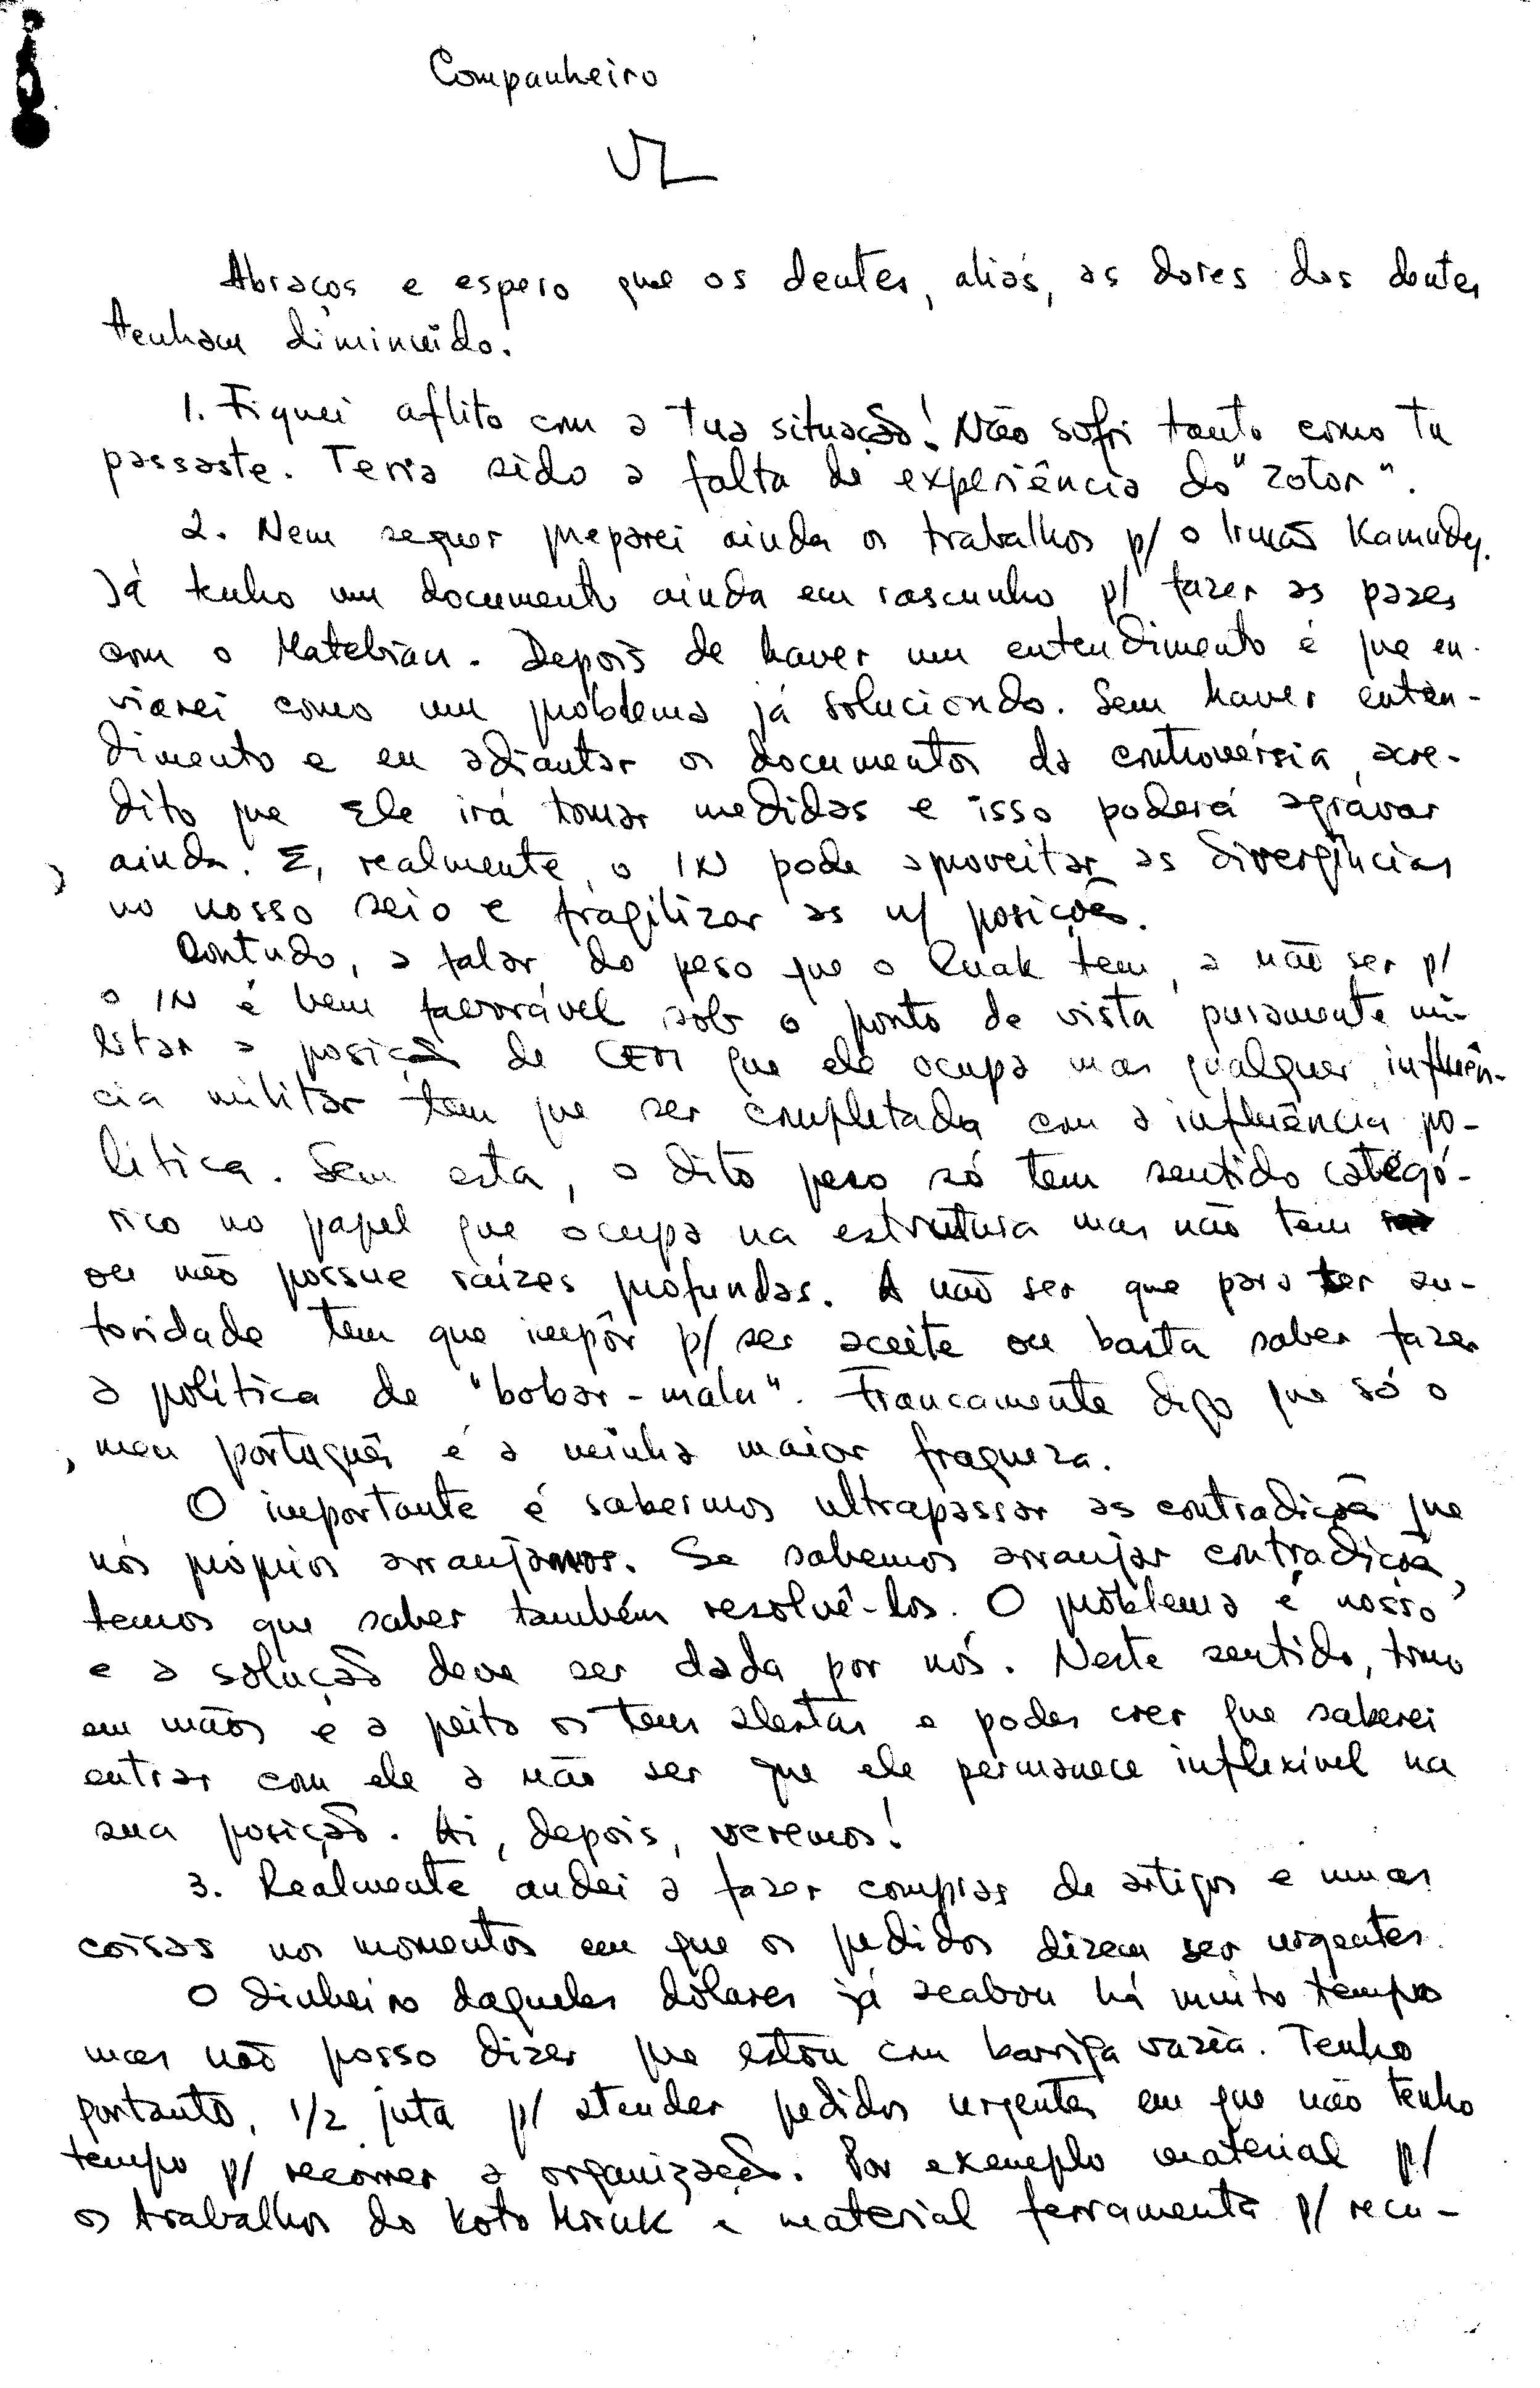 Companheiro
VL
Abraços e espero que os dentes, aliás, as dores dos dentes
tenham diminuído.
1. Fiquei aflito com a tua situação! Não sofri tanto como tu
passaste. Teria sido a falta de experiência do "rotor".
2. Nem sequer preparei ainda os trabalhos p/ o Irmão Kamudy.
Já tenho um documento ainda em rascunho p/ fazer as pazes
com o Matebian. Depois de haver um entendimento é que en-
viarei como um problema já soluciondo. Sem haver enten-
dimento e eu adiantar os documentos da controvérsia, acre-
dito que Ele irá tomar medidas e isso poderá agravar
ainda. E, realmente, o IN pode aproveitar as divergências
no nosso seio e fragilizar as n/ posições.
Contudo, a falar do peso que o Ruak tem, a não ser p/
o IN é bem favorável sob o ponto de vista puramente mi-
litar a posição de CEM que ele ocupa mas qualquer influên-
cia militar tem que ser completada com a influência po-
lítica. Sem esta, o dito peso só tem sentido categó-
rico no papel que ocupa na estrutura mas não tem
ou não possue raízes profundas. A não ser que para ter au-
toridade tem que impôr p/ ser aceite ou basta saber fazer
a política de "bobar-malu". Francamente digo que só o
meu português é a minha maior fraqueza.
O importante é sabermos ultrapassar as contradições que
nós próprios arranjamos. Se sabemos arranjar contradições,
temos que saber também resolvê-los. O problema é nosso
e a solução deve ser dada por nós. Neste sentido, tomo
em mãos e a peito os teus alertas e podes crer que saberei
entrar com ele a não ser que ele permanece inflexível na
sua posição. Aí, depois, veremos!
3. Realmente andei a fazer compras de artigos e umas
coisas nos momentos em que os pedidos dizem ser urgentes.
O dinheiro daqueles dólares já acabou há muito tempo
mas não posso dizer que estou com barriga vazia. Tenho
portanto, 1/2 juta p/ atender pedidos urgentes em que não tenho
tempo p/ recorrer a organização. Por exemplo material p/
os trabalhos do Koto Moruk e material ferramenta p/ recu-